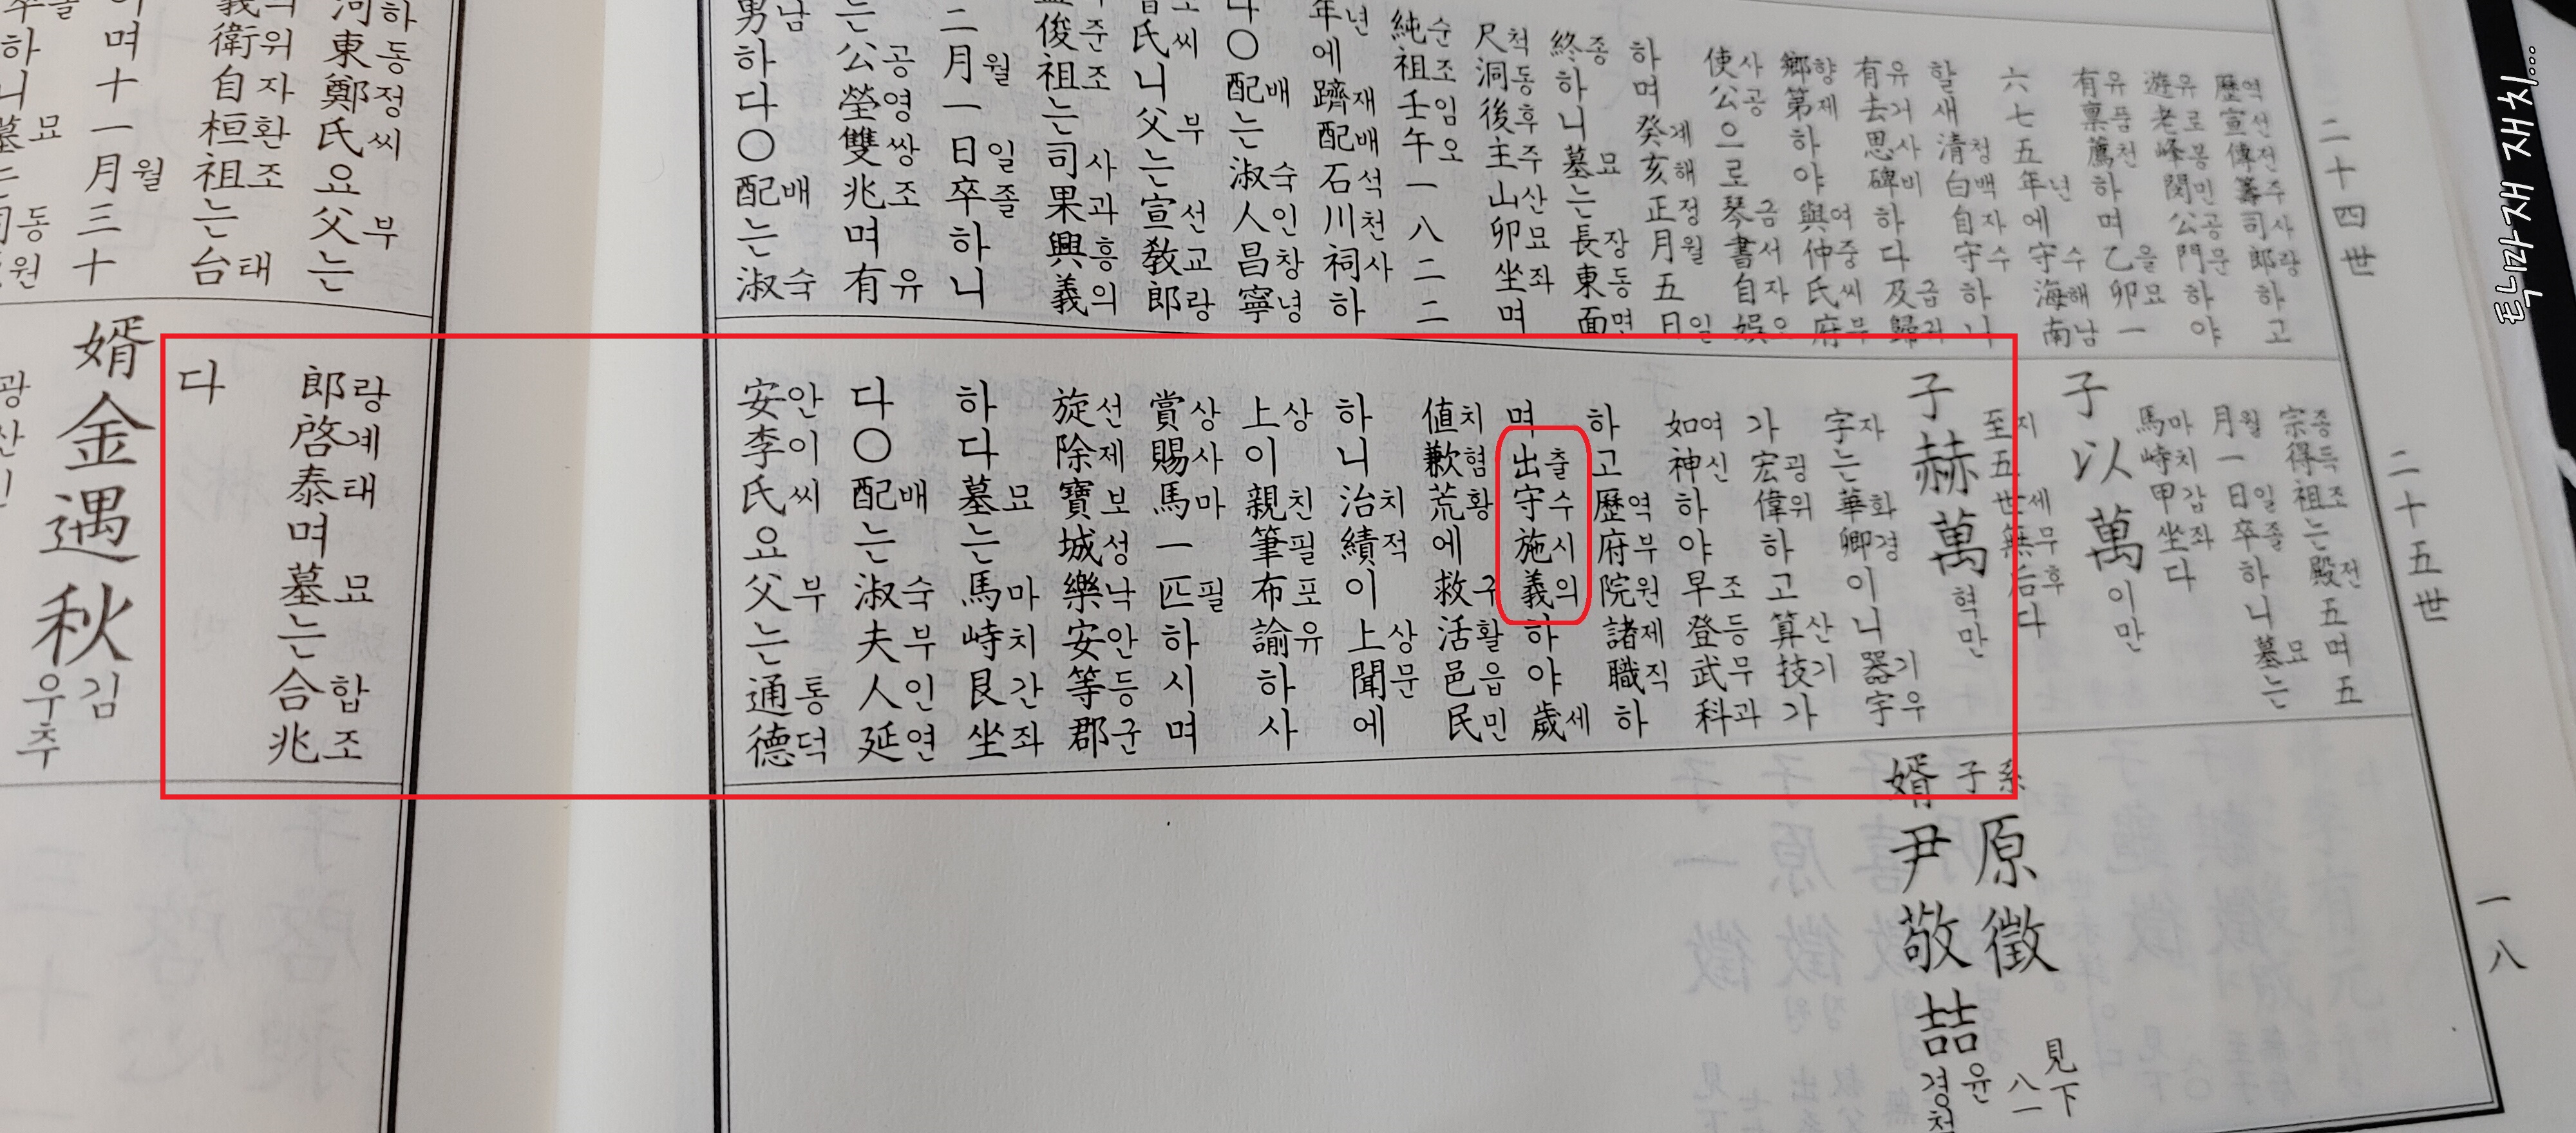 특막재 재치...
二十四世
歷역宣선傳전籌주司사郎랑하고
遊유老로峰봉閔민公공門문하야
有유稟품薦천하며乙을卯묘一
六七五年년에守수海해南남
할새清청白백自자守수하니
有유去거思사碑비하다及급歸귀
鄕향第제하야與여仲중氏씨府부
使사公공으로琴금書서自자娛오
하며癸계亥해正정月월五日일
終종하니墓묘는長장東동面면
尺척洞동後후主주山산卯묘坐좌며
純순祖조壬임午오一八二二
年년에躋재配배石석川천祠사하
다〇配배는淑숙人인昌창寧녕
氏씨니父부는宣선敎교郎랑
俊준祖조는司사果과興흥義의
二月월一日일卒졸하니
는公공塋영雙쌍兆조며有유
男남하다〇配배는淑숙
河하東동鄭정氏씨요父부는
義의衛위自자桓환祖조는台태
며十一月월三十
二十五世
宗종得득祖조는殿전五며五
月월一日일卒졸하니墓묘는
馬마峙치甲갑坐좌다
子以萬이만
至지五世세無무后후다
子赫萬혁만
字자는華화卿경이니器기宇우
가宏굉偉위하고算산技기가
如여神신하야早조登등武무科과
하고歷역府부院원諸제職직하
며出출守수施시義의하야歲세
値치歉혐荒황에救구活활邑읍民민
하니治치績적이上상聞문에
上상이親친筆필布포諭유하사
賞상賜사馬마一匹필하시며
旋선除제寶보城성樂낙安안等등郡군
하다墓묘는馬마峙치艮간坐좌
다〇配배는淑숙夫부人인延연
安안李이氏씨요父부는通통德덕
郎랑啓계泰태며墓묘는合합兆조
다
婿金遇秋김우추
系子原徵見下八一
婿尹敬喆윤경철
一八